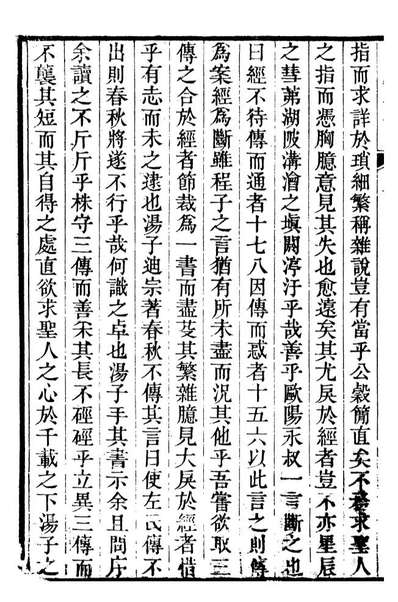 指而求詳於瑣細繁稱雜說豈有當乎公穀簡直矣不務求聖人
之指而憑胸臆意見其失也愈遠矣其尤戾於經者豈不亦星辰
之彗茀湖陂溝澮之塡閼渟汙乎哉善乎歐陽永叔一言斷之也
曰經不待傳而通者十七八因傳而惑者十五六以此言之則傳
為案經為斷雖程子之言猶有所未盡而況其他乎吾嘗欲取三
傳之合於經者節裁為一書而盡芟其繁雜臆見大戾於經者惜
乎有志而未之逮也湯子迪宗著春秋不傳其言曰使左氏傳不
出則春秋將遂不行乎哉何識之卓也湯子手其書示余且問序
余讀之不斤斤乎株守三傳而善采其長不硜硜乎立異三傳而
不襲其短而其自得之處直欲求聖人之心於千載之下湯子之